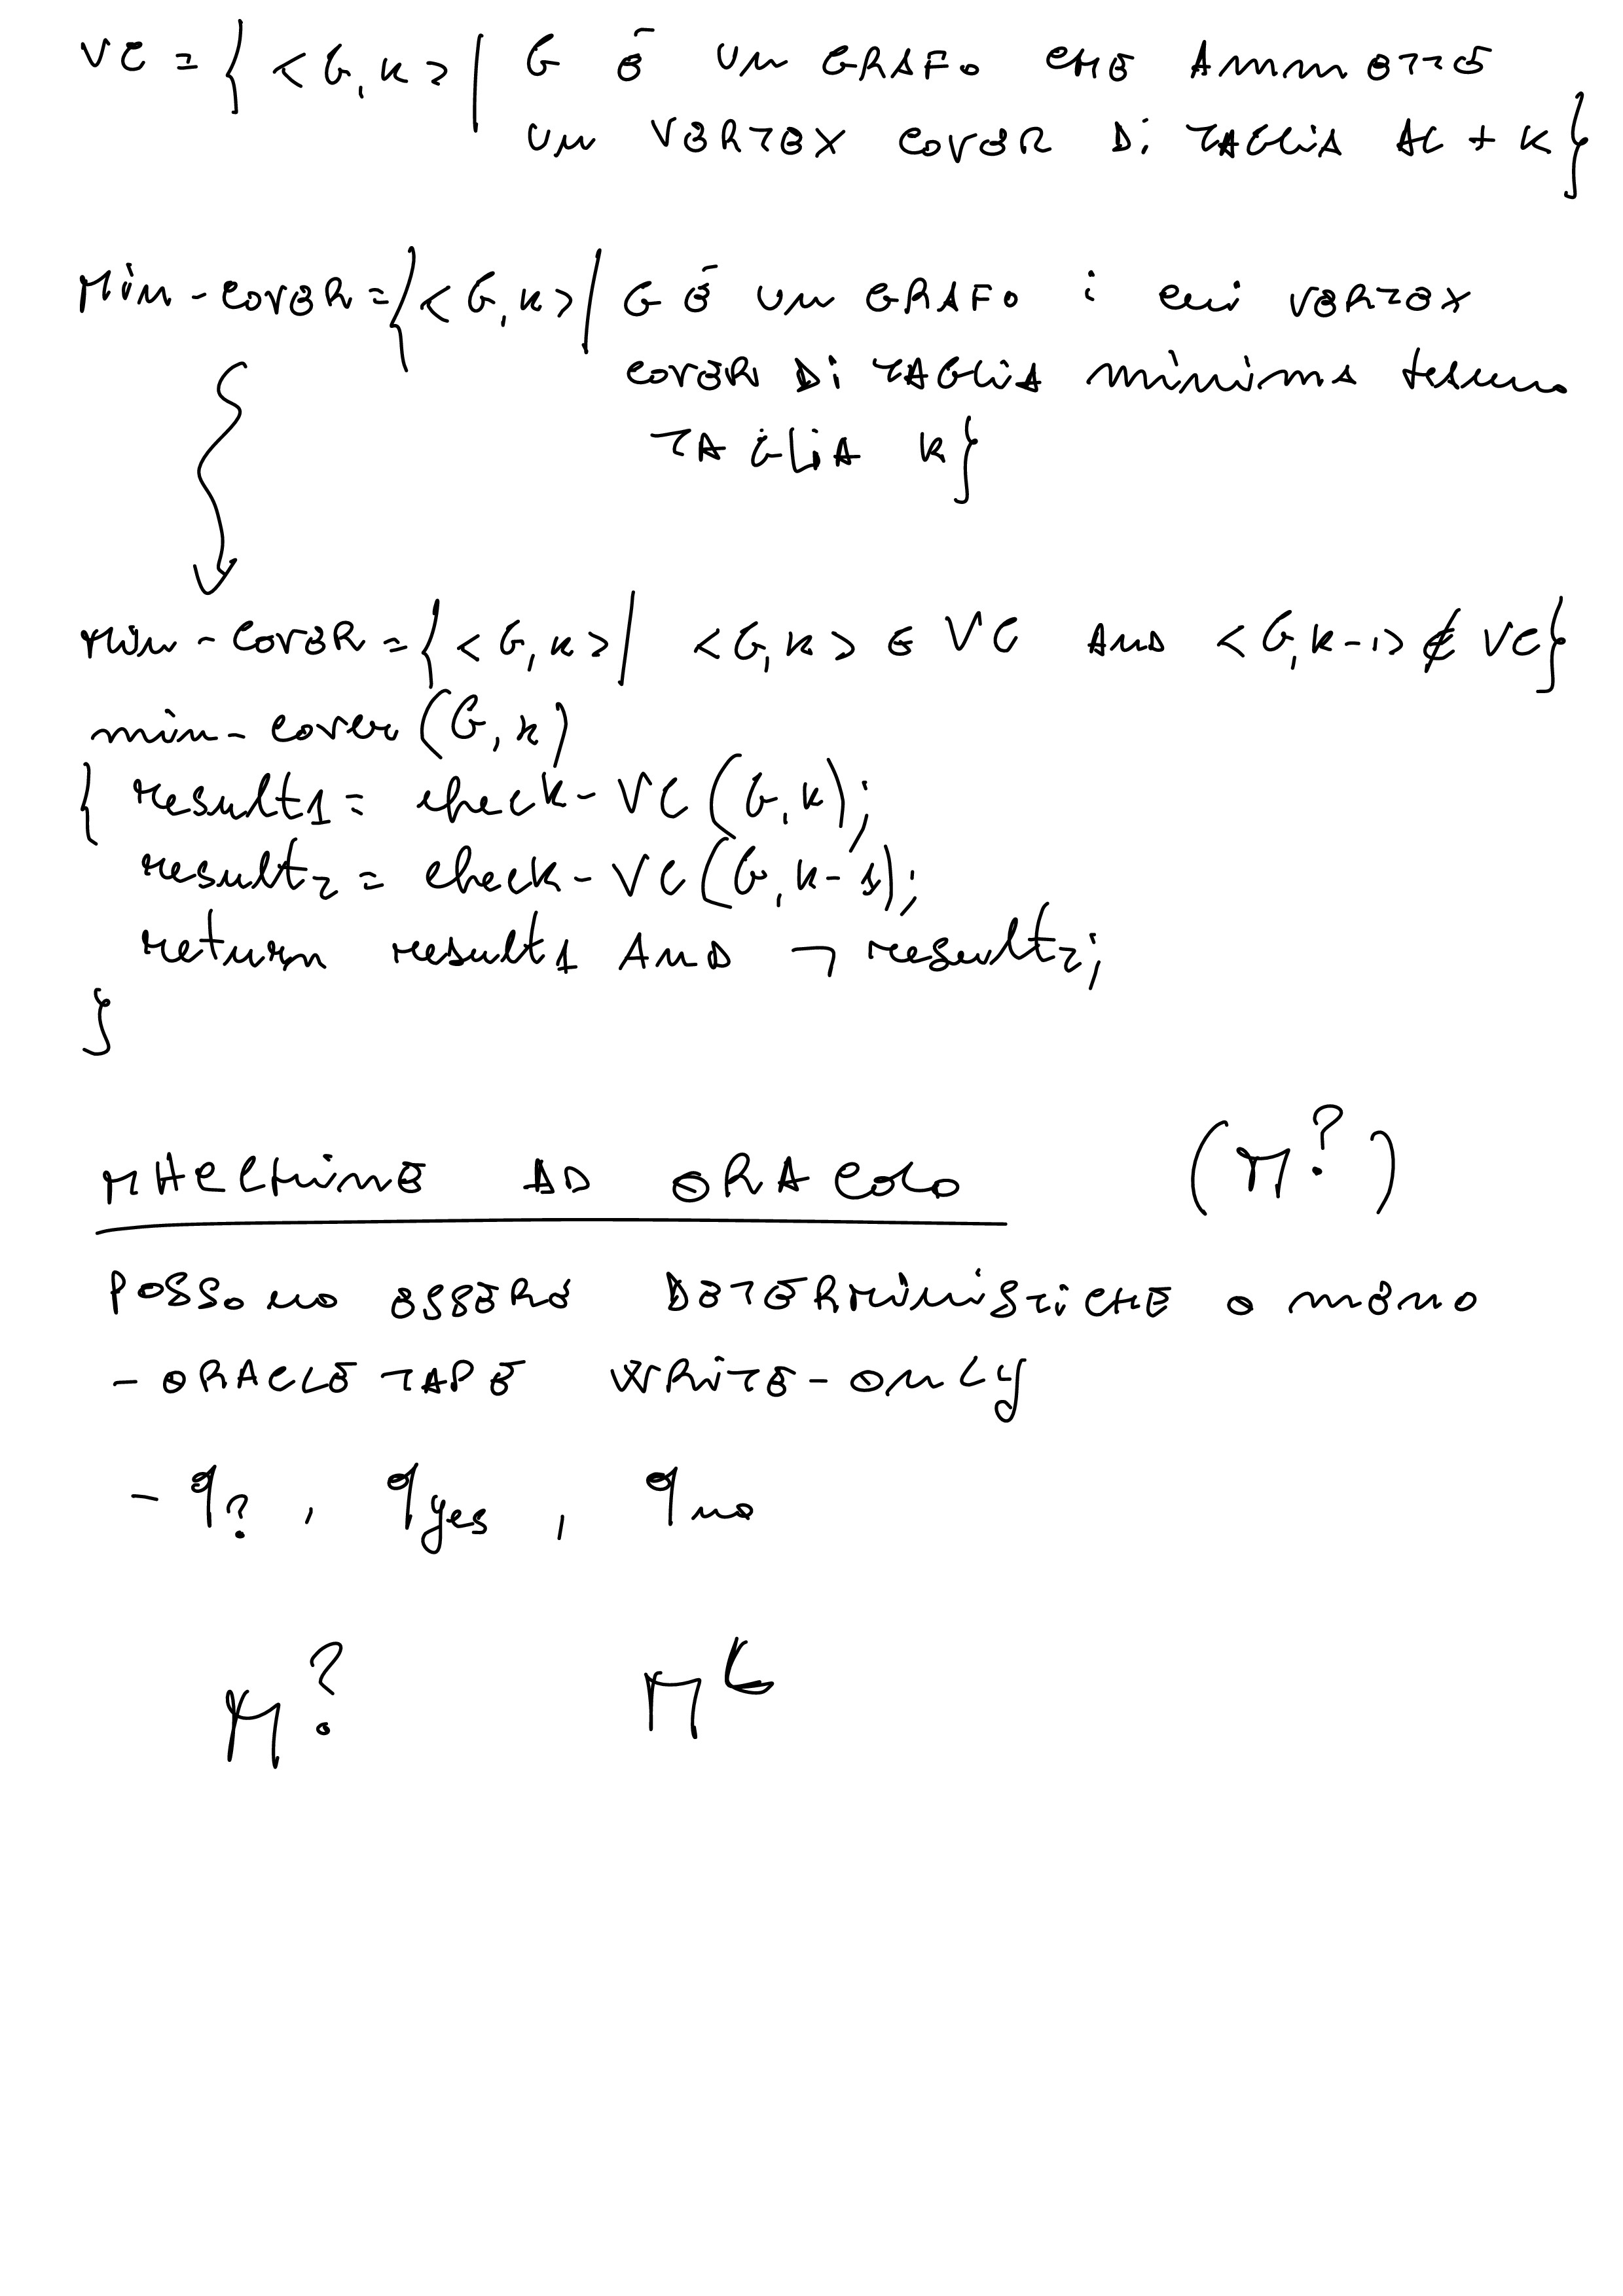 VC = { <G, K> | G È UN GRAFO CHE AMMETTE
UN VERTEX COVER DI TAGLIA AL + K }
MIN-COVER = { <G, K> | G È UN GRAFO i cui VERTEX
COVER DI TAGLIA MINIMA hanno
TAGLIA K }
MIN-COVER = { <G, K> | <G, K> ∈ VC AND <G, K-1> ∉ VC }
min-cover (G, K)
{ result1 = check-VC (G, K);
result2 = check-VC (G, K-1);
return result1 AND ¬ result2;
}
MACCHINE AD ORACOLO (M?)
POSSONO ESSERE DETERMINISTICHE O MENO
- ORACLE TAPE WRITE-ONLY
- q?, qyes, qno
M? M^L